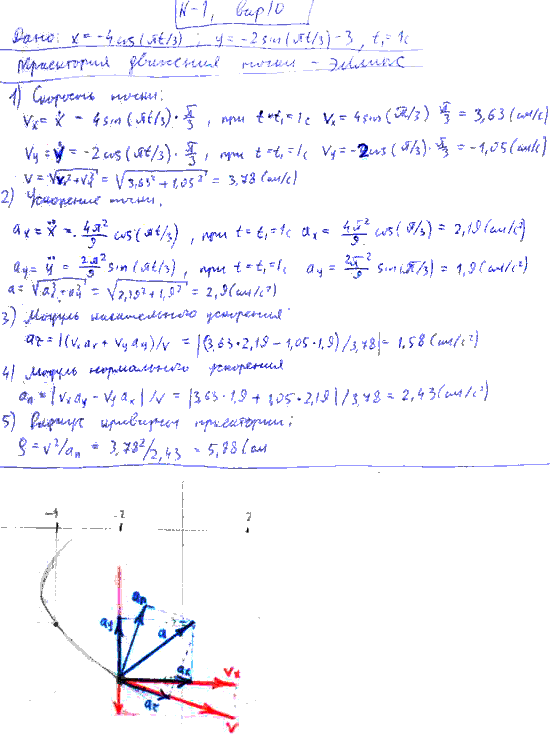 К-1, вар10
Дано: x = -4cos(πt/3) ; y = -2sin(πt/3)-3 , t₁=1c
Траектория движения точки - Эллипс
1) Скорость точки:
Vx = ẋ = 4sin(πt/3)·π/3 , при t=t₁=1c Vx = 4sin(π/3)·π/3 = 3,63(см/с)
Vy = ẏ = -2cos(πt/3)·π/3 , при t=t₁=1c Vy = -2cos(π/3)·π/3 = -1,05(см/с)
V = √(Vx²+Vy²) = √(3,63²+1,05²) = 3,78(см/с)
2) Ускорение точки.
ax = ẍ = 4π²/9 cos(πt/3) , при t=t₁=1c ax = 4π²/9 cos(π/3) = 2,19(см/с²)
ay = ÿ = 2π²/9 sin(πt/3) , при t=t₁=1c ay = 2π²/9 sin(π/3) = 1,9(см/с²)
a = √(ax²+ay²) = √(2,19²+1,9²) = 2,9(см/с²)
3) Модуль касательного ускорения
aτ = |(Vx ax + Vy ay)/V = |(3,63·2,19-1,05·1,9)/3,78| = 1,58(см/с²)
4) Модуль нормального ускорения
an = |Vx ay - Vy ax|/V = |3,63·1,9+1,05·2,19|/3,78 = 2,43(см/с²)
5) Радиус кривизны траектории:
ρ = V²/an = 3,78²/2,43 = 5,88(см
-4 -2 2
an
ay a
ax Vx
aτ
V